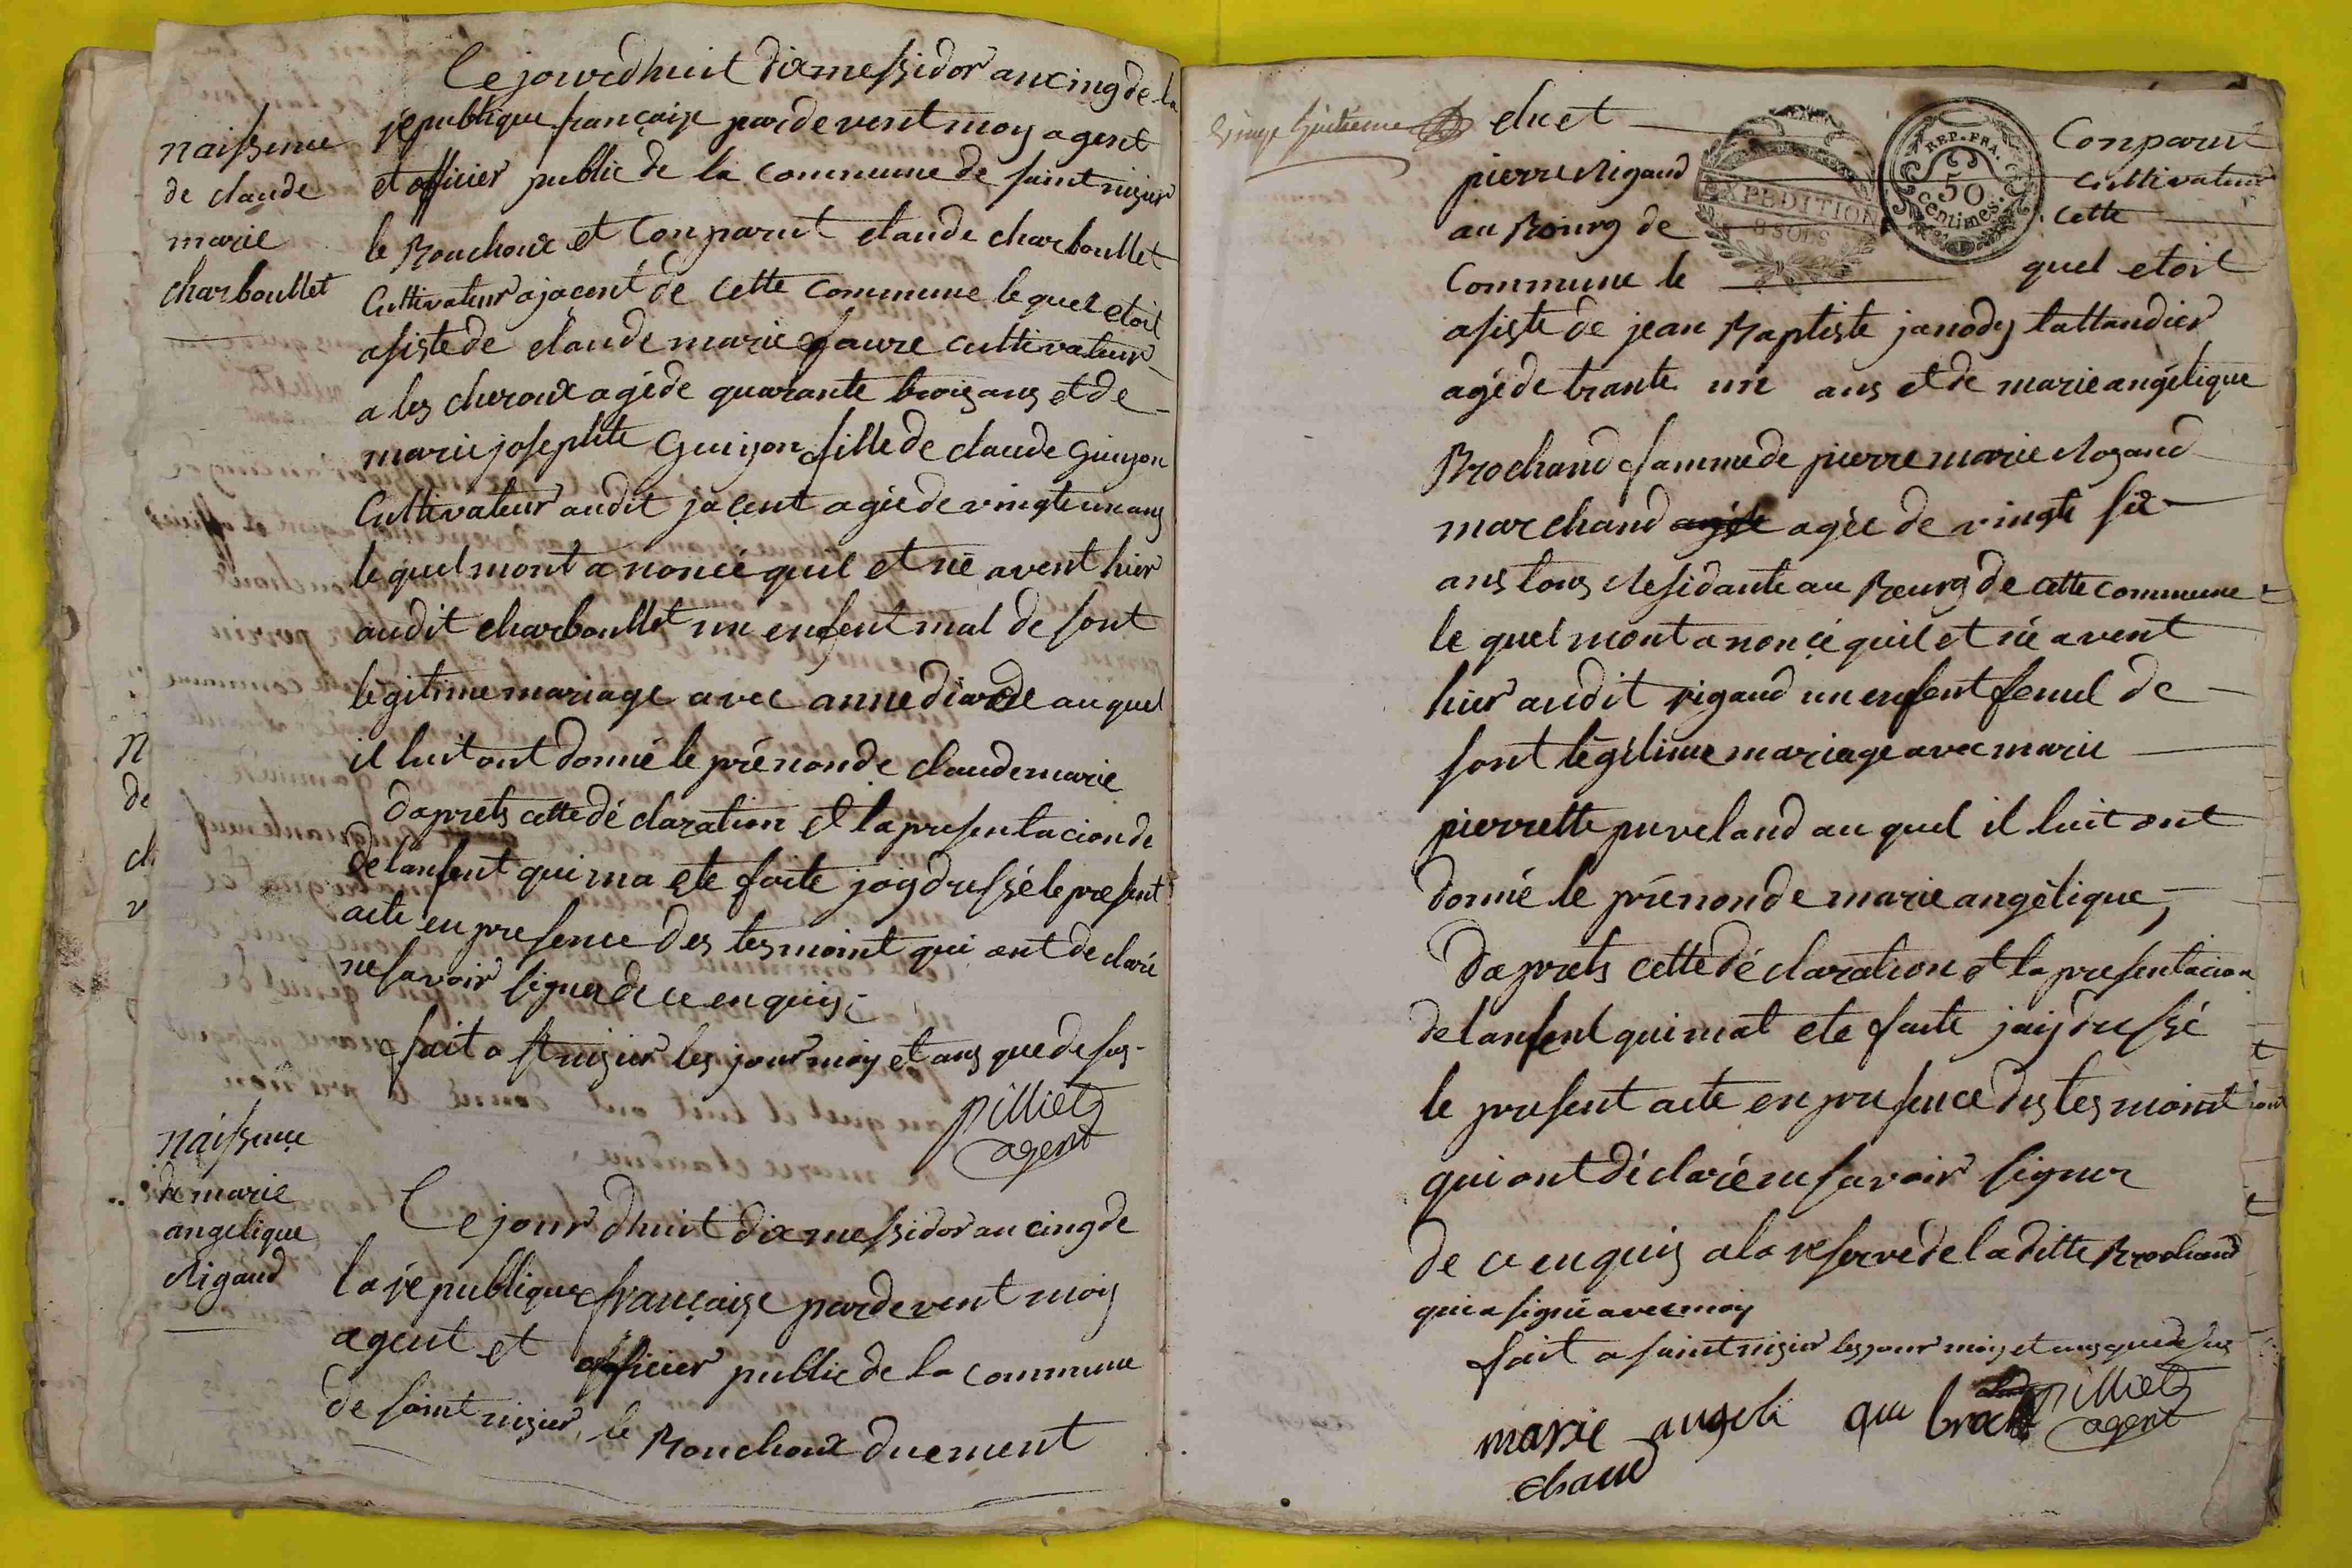 naissence
de claude
marie
charboullet
Cejourdhuit dix messidor an cinq de la
republique française par devent moy agent
et officier public de la commune de saint nizier
le Bouchoux et Conparut claude charboullet
Cultivateur a jacent de cette commune le quel etoit
asiste de claude marie faure cultivateur
a les cheroux agé de quarante trois ans et de
marie josephte Guigon fille de claude Guigon
Cultivateur audit jacent agée de vingt un ans
le quel mont a noncé quil et né avent hier
audit charboullet un enfent mal de sont
legitime mariage avec anne diarde au quel
il luit ont donné le prénon de claude marie
daprets cette déclaration et la presentacion de
de lanfent qui ma ete faite jaiy dressé le present
acte en presence des tesmoint qui ont declaré
ne savoir signer de ce enquis
fait a st nizier les jour mois et ans que desus
pilliet
agent
naissence
de marie
angelique
Rigaud
Ce jour dhuit dix messidor an cinq de
la republique française par devent moy
agent et officier public de la commune
de saint nizier le Bouchoux duement
elu et Conparut
pierre Rigaud cultivateur
au Bourg de cette
Commune le quel etoit
asiste de jean Baptiste janody tallandier
agé de trante un ans et de marie angélique
Brochand famme de pierre marie Rogand
marchand agée de vingt six
ans tous Residante au Bourg de cette commune
le quel mont a noncé quil et né avent
hier audit rigaud un enfent femel de
sont légitime mariage avec marie
pierrette puveland au quel il luit ont
donné le prénon de marie angélique,
Daprets cette déclaration et la presentacion
de lanfent qui mat ete faite jaiy dressé
le present acte en presence des tesmoint
qui ont déclaré ne savoir signer
de ce enquis a la reserve de la ditte Brochand
qui a signé avec moy
fait a saint nizier les jour mois et ans que desus
marie angeli que broch
chand
pilliet
agent
EXPEDITION
8 SOLS
REP. FRA.
50
centimes.